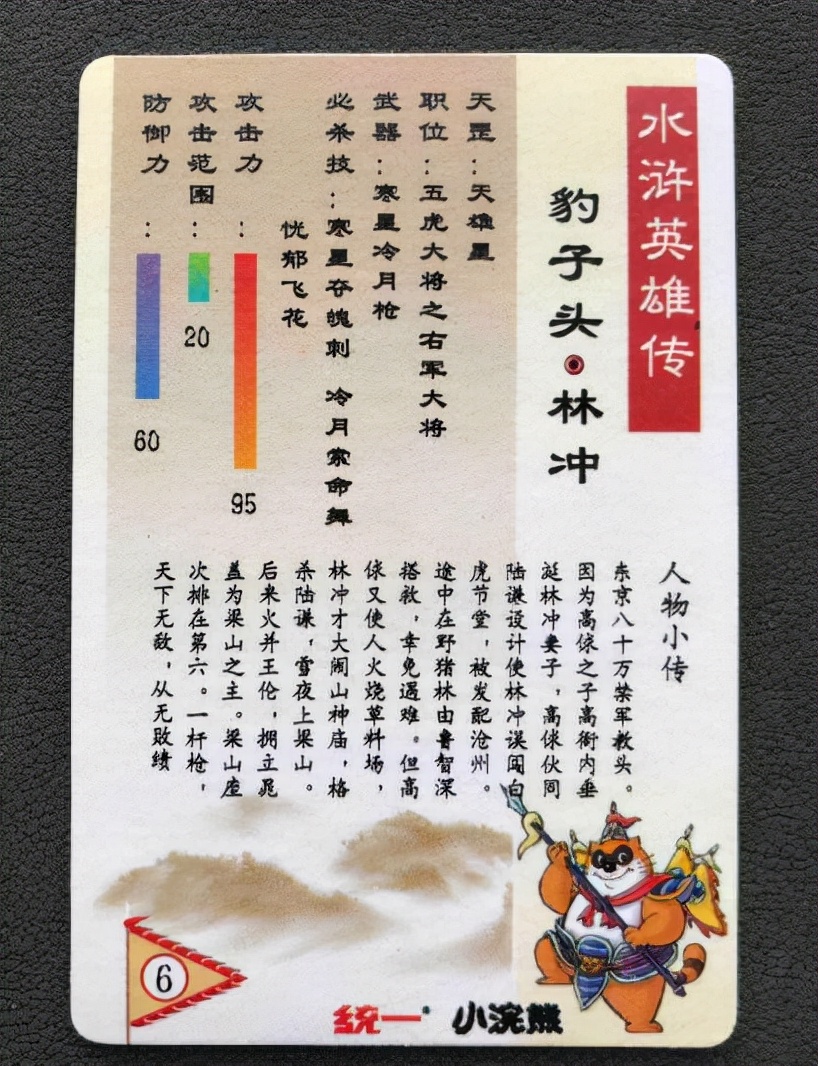 水浒英雄传
豹子头·林冲
天罡：天雄星
职位：五虎大将之右军大将
武器：寒星冷月枪
必杀技：寒星夺魄刺 冷月索命舞
恍郁飞花
攻击力：95
攻击范围：20
防御力：60
人物小传
东京八十万禁军教头。
因为高俅之子高衙内垂
涎林冲妻子，高俅伙同
陆谦设计使林冲误闯白
虎节堂，被发配沧州。
途中在野猪林由鲁智深
搭救，幸免遇难。但高
俅又使人火烧草料场，
林冲才大闹山神庙，格
杀陆谦，雪夜上梁山。
后来火并王伦，拥立晁
盖为梁山之主。梁山座
次排在第六。一杆枪，
天下无敌，从无败绩
6
统一 小浣熊